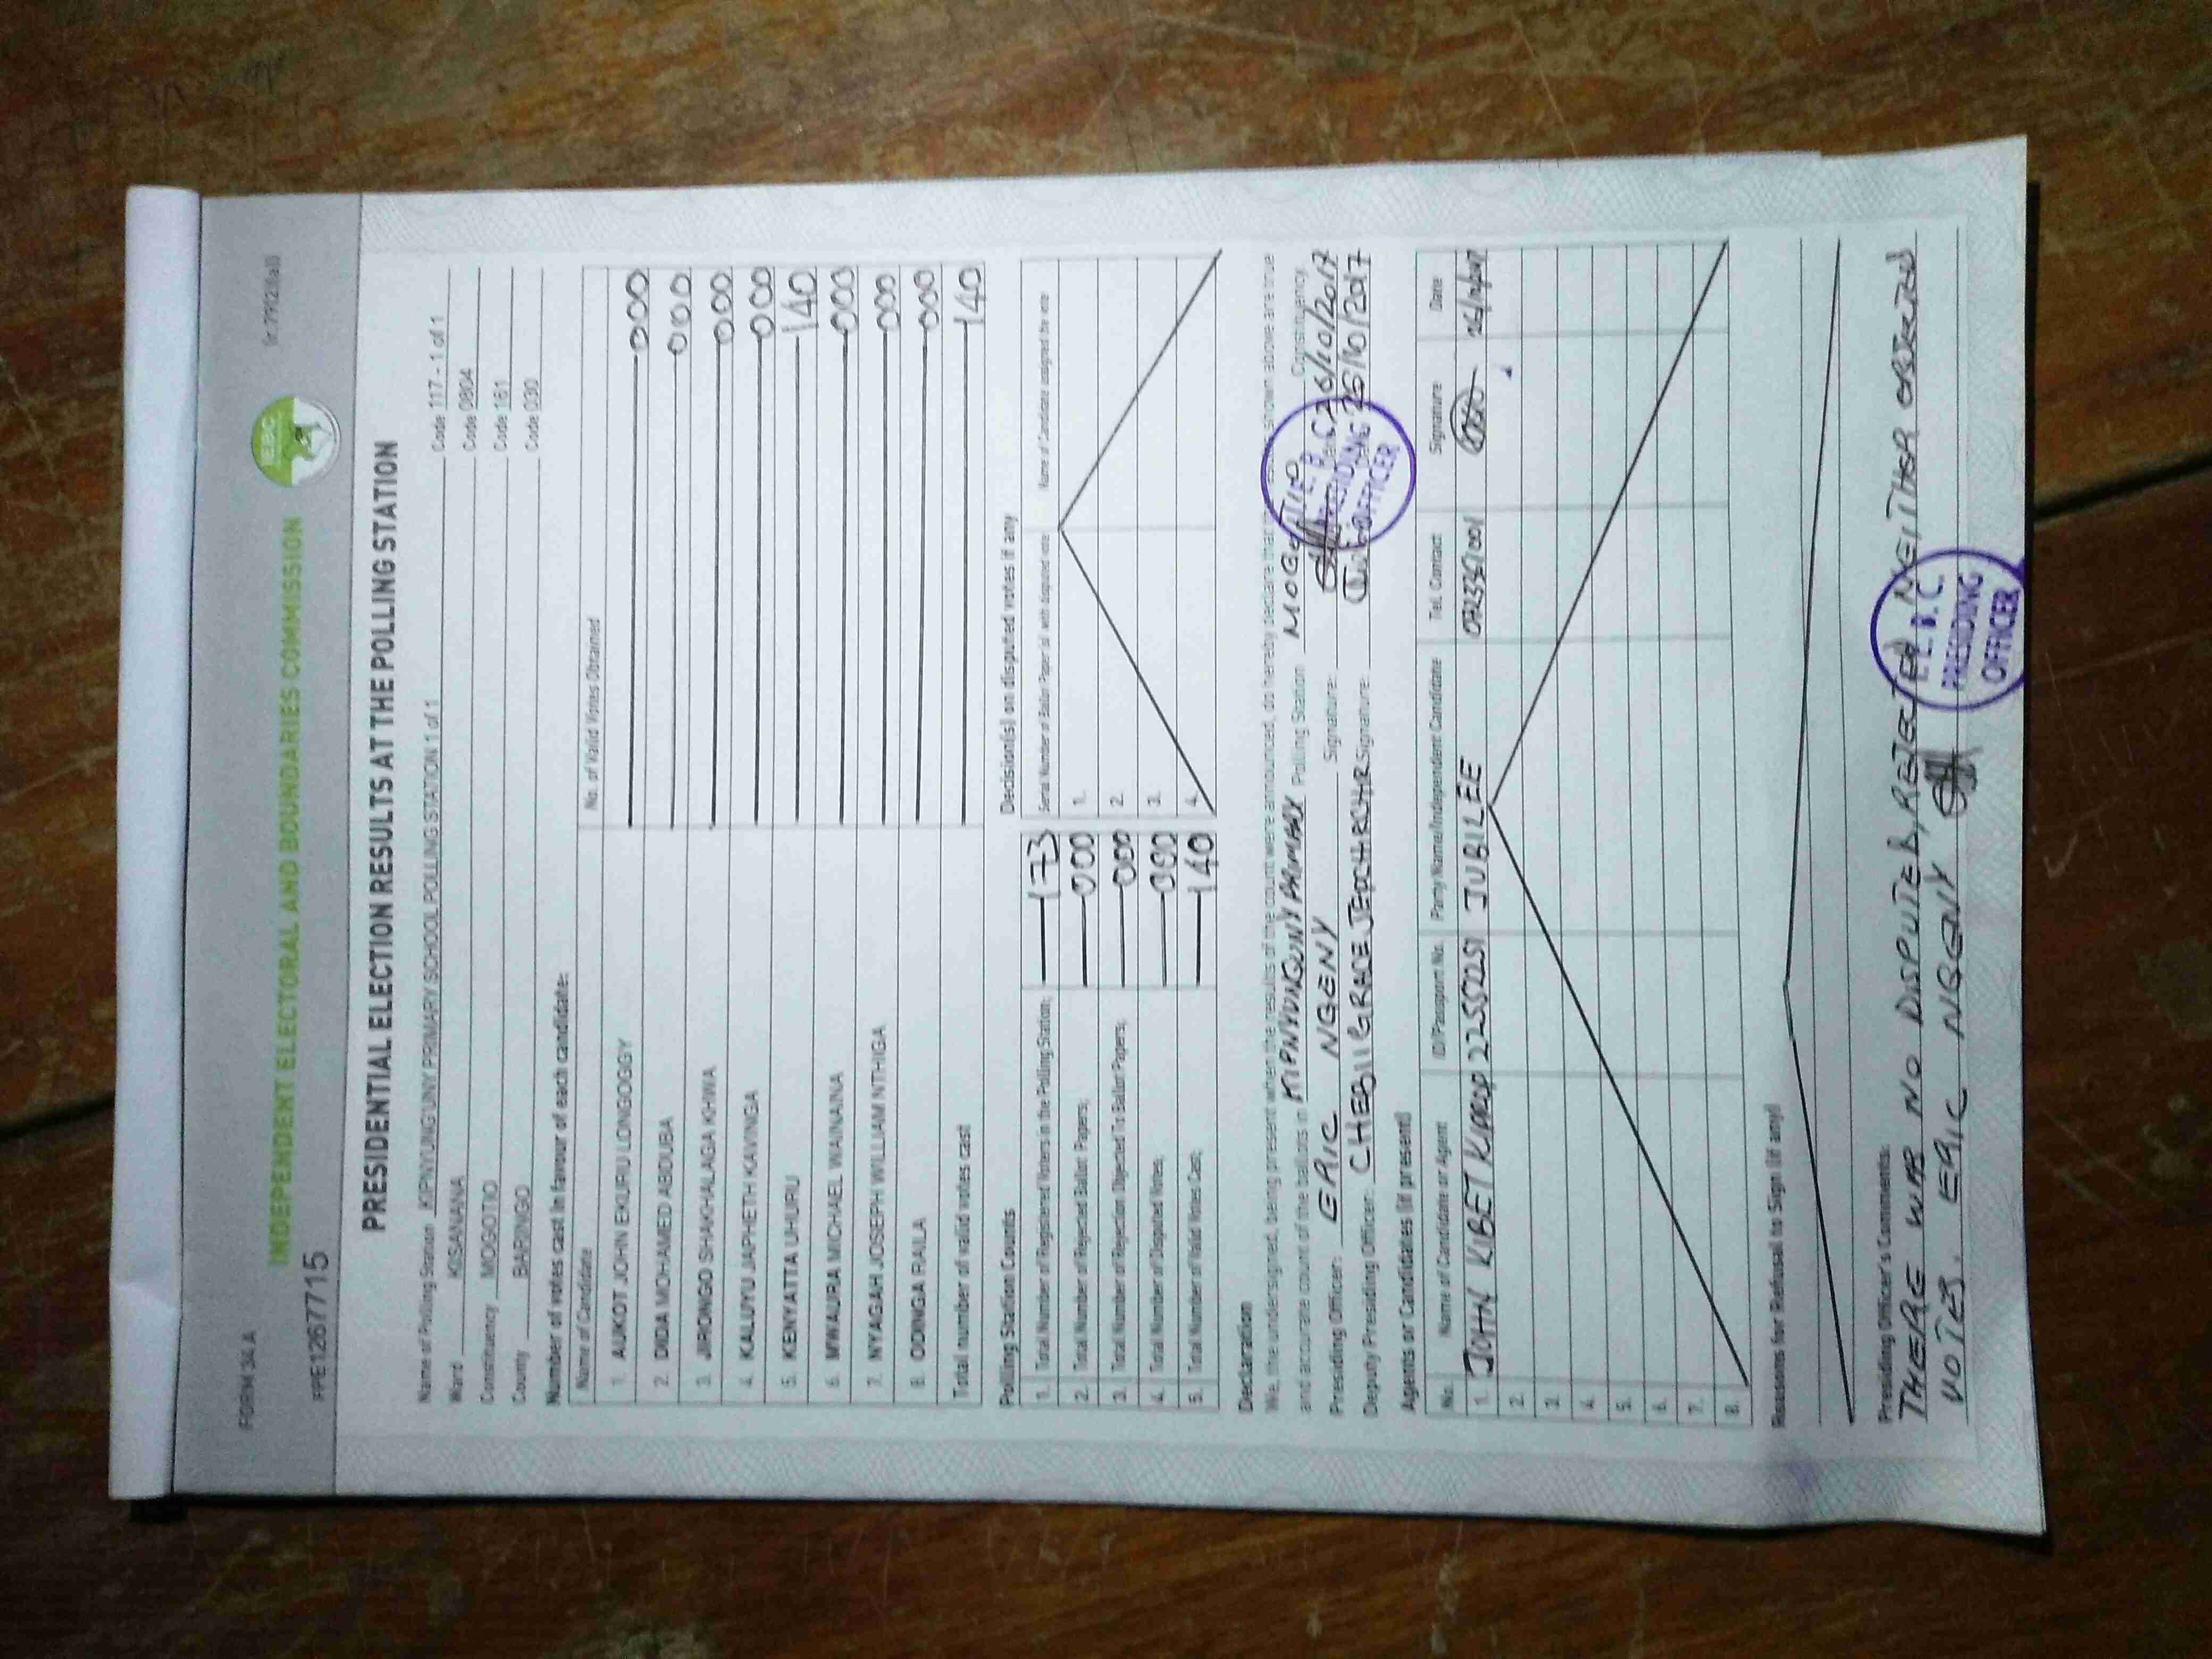 FORM 34 A
INDEPENDENT ELECTORAL AND BOUNDARIES COMMISSION
IEBC
PRE1267715
PRESIDENTIAL ELECTION RESULTS AT THE POLLING STATION
Name of Polling Station KIPNYUNGUNY PRIMARY SCHOOL POLLING STATION 1 of 1 Code 117 - 1 of 1
Ward KISANANA Code 0804
Constituency MOGOTIO Code 161
County BARINGO Code 030
Number of votes cast in favour of each candidate:
Name of Candidate No. of Valid Votes Obtained
1. AUKOT JOHN EKURU LONGOGGY 000
2. DIDA MOHAMED ABDUBA 000
3. JIRONGO SHAKHALAGA KHWA 000
4. KALUYU JAPHETH KAVINGA 000
5. KENYATTA UHURU 140
6. MWAURA MICHAEL WAINAINA 000
7. NYAGAH JOSEPH WILLIAM NTHIGA 000
8. ODINGA RAILA 000
Total number of valid votes cast 140
Polling Station Counts Decision(s) on disputed votes if any
Serial Number of Ballot Paper (s) with disputed vote Name of Candidate assigned the vote
1. Total Number of Registered Voters in the Polling Station; 173 1.
2. Total Number of Rejected Ballot Papers; 000 2.
3. Total Number of Rejection Objected To Ballot Papers; 000 3.
4. Total Number of Disputed Votes; 000 4.
5. Total Number of Valid Votes Cast; 140
Declaration
We, the undersigned, being present when the results of the count were announced, do hereby declare that the shown above are true
and accurate count of the ballots in KIPNYUNGUNY PRIMARY Polling Station MOGOTIO Constituency
Presiding Officer: ERIC NGENY Signature: 26/10/2017
Deputy Presiding Officer: CHEBII GRACE JEPCHIRCHIR Signature: 26/10/2017
I.E.B.C. PRESIDING OFFICER
Agents or Candidates (if present)
No. Name of Candidate or Agent ID/Passport No. Party Name/Independent Candidate Tel. Contact Signature Date
1. JOHN KIBET KIPROP 22552251 JUBILEE 26/10/2017
2.
3.
4.
5.
6.
7.
8.
Reasons for Refusal to Sign (if any)
Presiding Officer's Comments:
THERE WAS NO DISPUTED, REJECTED NEITHER OBJECTED
VOTES. ERIC NGENY
I.E.B.C.
PRESIDING
OFFICER